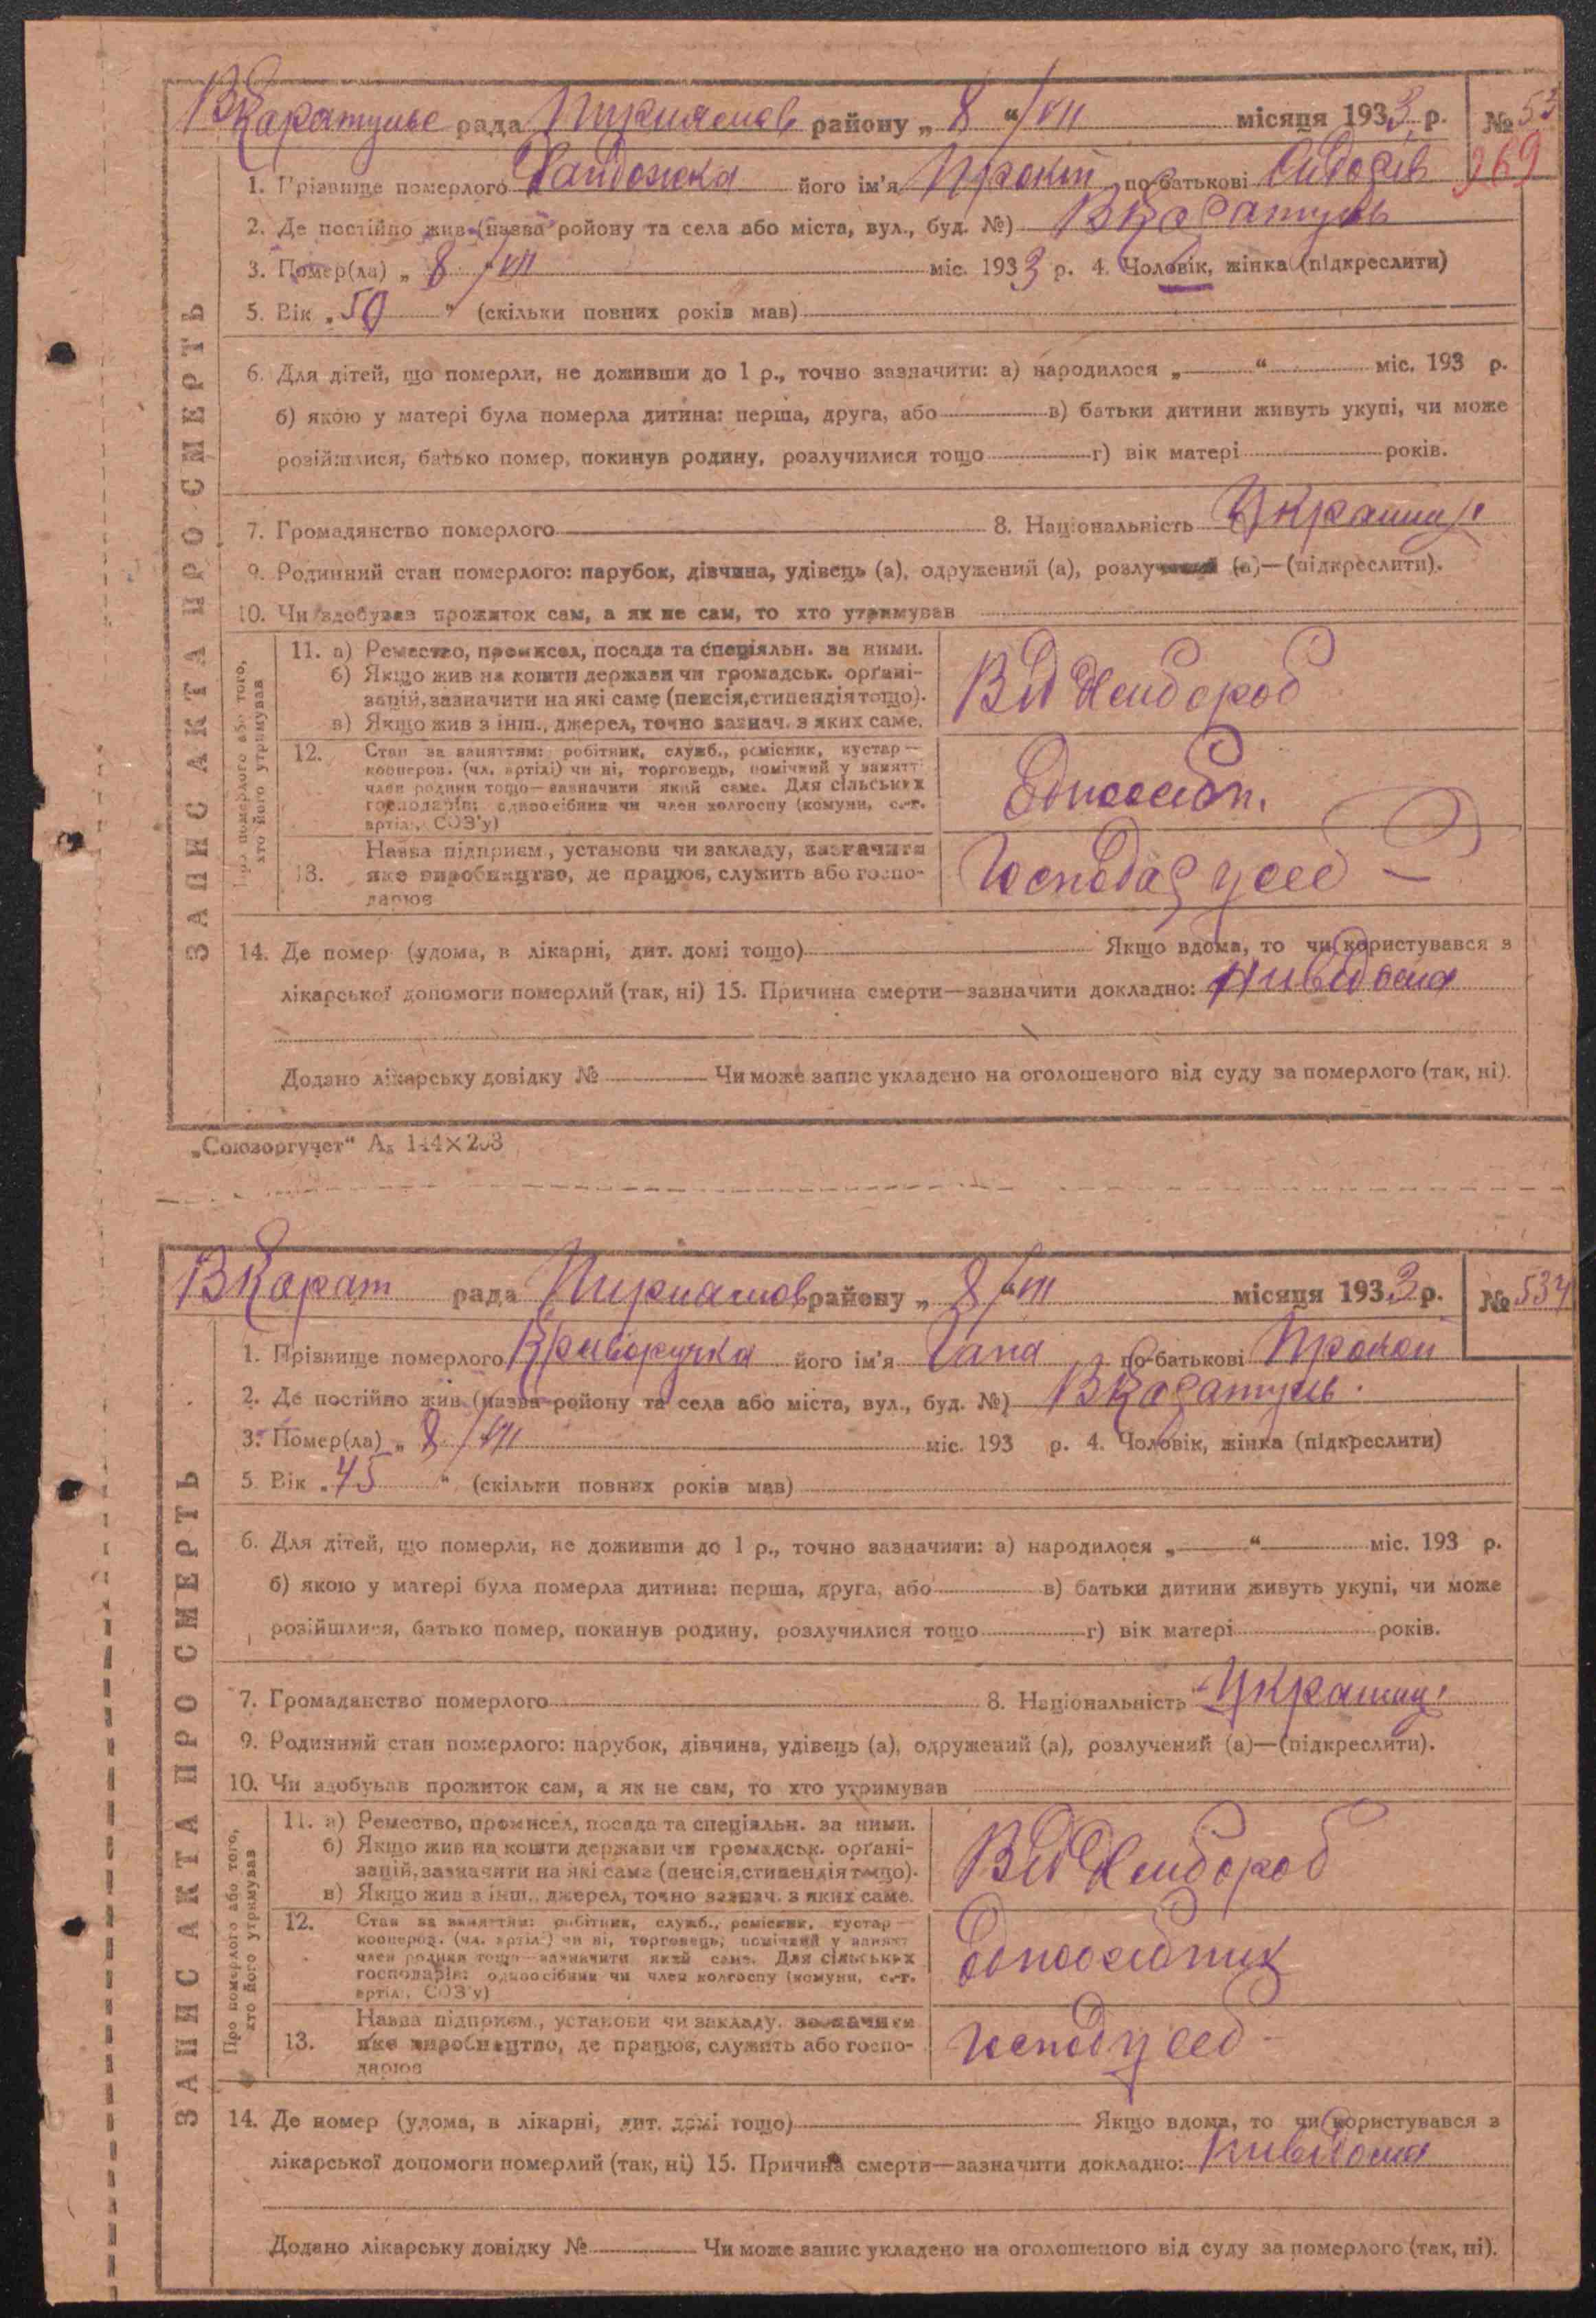 ВКаратульс рада Пирнямов району „ 8 “/VII місяця 1933 р. № 53
269
1. Прізвище померлого Гайдожка його ім'я Прокіп по-батькові Сидорів
2. Де постійно жив (назва ройону та села або міста, вул., буд. №) ВКаратуль
3. Помер(ла) „ 8 /VII міс. 1933 р. 4. Чоловік, жінка (підкреслити)
5. Вік „ 50 “ (скільки повних років мав)
6. Для дітей, що померли, не доживши до 1 р., точно зазначити: а) народилося „ “ міс. 193 р.
б) якою у матері була померла дитина: перша, друга, або в) батьки дитини живуть укупі, чи може
розійшлися, батько помер, покинув родину, розлучилися тощо г) вік матері років.
7. Громадянство померлого 8. Національність Украинц
9. Родинний стан померлого: парубок, дівчина, удівець (а), одружений (а), розлучений (а)—(підкреслити).
10. Чи здобував прожиток сам, а як не сам, то хто утримував
ЗАПИС АКТА ПРО СМЕРТЬ
Про померлого або того, хто його утримував
11. а) Ремество, промисел, посада та спеціяльн. за ними.
б) Якщо жив на кошти держави чи громадськ. орґані-
зацій, зазначити на які саме (пенсія, стипендія тощо).
в) Якщо жив з інш., джерел, точно зазнач. з яких саме.
12. Стан за заняттям: робітник, служб., ремісник, кустар—
кооперов. (чл. артілі) чи ні, торговець, помічний у занятті
член родини тощо—зазначити який саме. Для сільських
господарів: одноосібник чи член колгоспу (комуни, с.-г.
артілі, СОЗ'у)
Одноосібн.
Назва підприєм., установи чи закладу, зазначити
13. яке виробництво, де працює, служить або госпо-
дарює
14. Де помер (удома, в лікарні, дит. домі тощо) Якщо вдома, то чи користувався з
лікарської допомоги померлий (так, ні) 15. Причина смерти—зазначити докладно: Нивідома
Додано лікарську довідку № Чи може запис укладено на оголошеного від суду за померлого (так, ні).
„Союзоргучет“ А₅ 144×203
ВКарат рада Пирнямов району „ 8/“VII місяця 1933 р. № 534
1. Прізвище померлого Криворучка його ім'я Гапа по-батькові Прокоп
2. Де постійно жив (назва ройону та села або міста, вул., буд. №) ВКаратуль.
3. Помер(ла) „ 8 /VII міс. 193 р. 4. Чоловік, жінка (підкреслити)
5. Вік „ 45 “ (скільки повних років мав)
6. Для дітей, що померли, не доживши до 1 р., точно зазначити: а) народилося „ “ міс. 193 р.
б) якою у матері була померла дитина: перша, друга, або в) батьки дитини живуть укупі, чи може
розійшлися, батько помер, покинув родину, розлучилися тощо г) вік матері років.
7. Громадянство померлого 8. Національність Украинц
9. Родинний стан померлого: парубок, дівчина, удівець (а), одружений (а), розлучений (а)—(підкреслити).
10. Чи здобував прожиток сам, а як не сам, то хто утримував
ЗАПИС АКТА ПРО СМЕРТЬ
Про померлого або того, хто його утримував
11. а) Ремество, промисел, посада та спеціяльн. за ними.
б) Якщо жив на кошти держави чи громадськ. орґані-
зацій, зазначити на які саме (пенсія, стипендія тощо).
в) Якщо жив з інш., джерел, точно зазнач. з яких саме.
12. Стан за заняттям: робітник, служб., ремісник, кустар—
кооперов. (чл. артілі) чи ні, торговець, помічний у занятті
член родини тощо—зазначити який саме. Для сільських
господарів: одноосібник чи член колгоспу (комуни, с.-г.
артілі, СОЗ'у)
Одноосібник
Назва підприєм., установи чи закладу, зазначити
13. яке виробництво, де працює, служить або госпо-
дарює
14. Де помер (удома, в лікарні, дит. домі тощо) Якщо вдома, то чи користувався з
лікарської допомоги померлий (так, ні) 15. Причина смерти—зазначити докладно: Нивідома
Додано лікарську довідку № Чи може запис укладено на оголошеного від суду за померлого (так, ні).